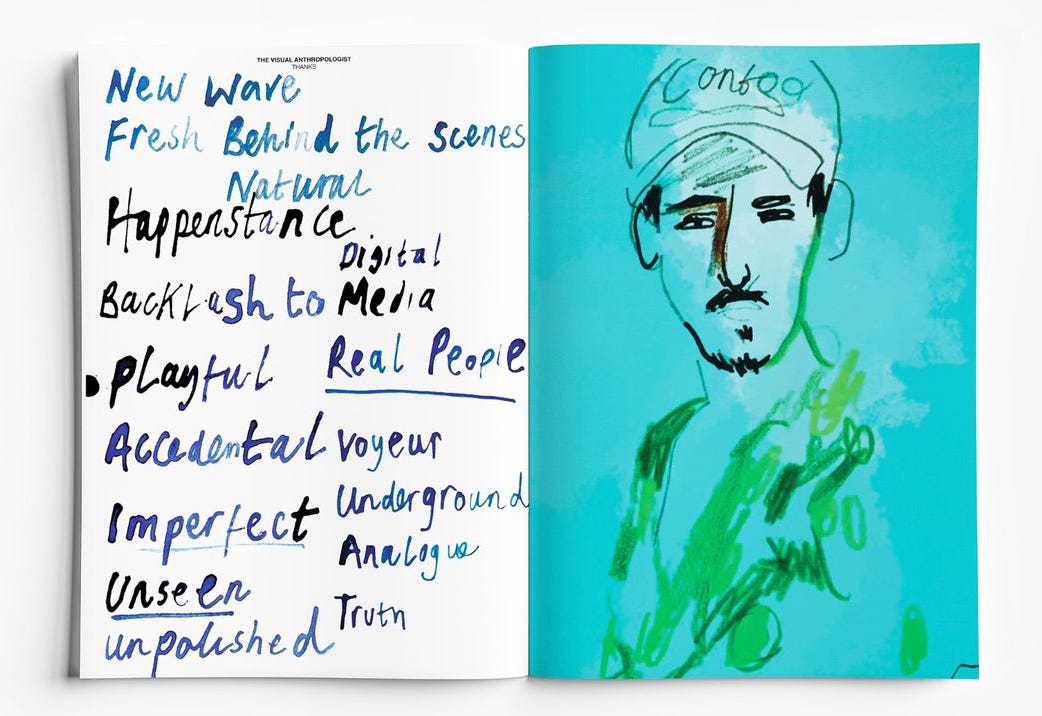 THE VISUAL ANTHROPOLOGIST
THANKS
New Wave
Fresh Behind the scenes
Natural
Happenstance
Digital
Backlash to Media
Playful
Real People
Accedental
Voyeur
Imperfect
Underground
Analogue
Unseen
Truth
unpolished